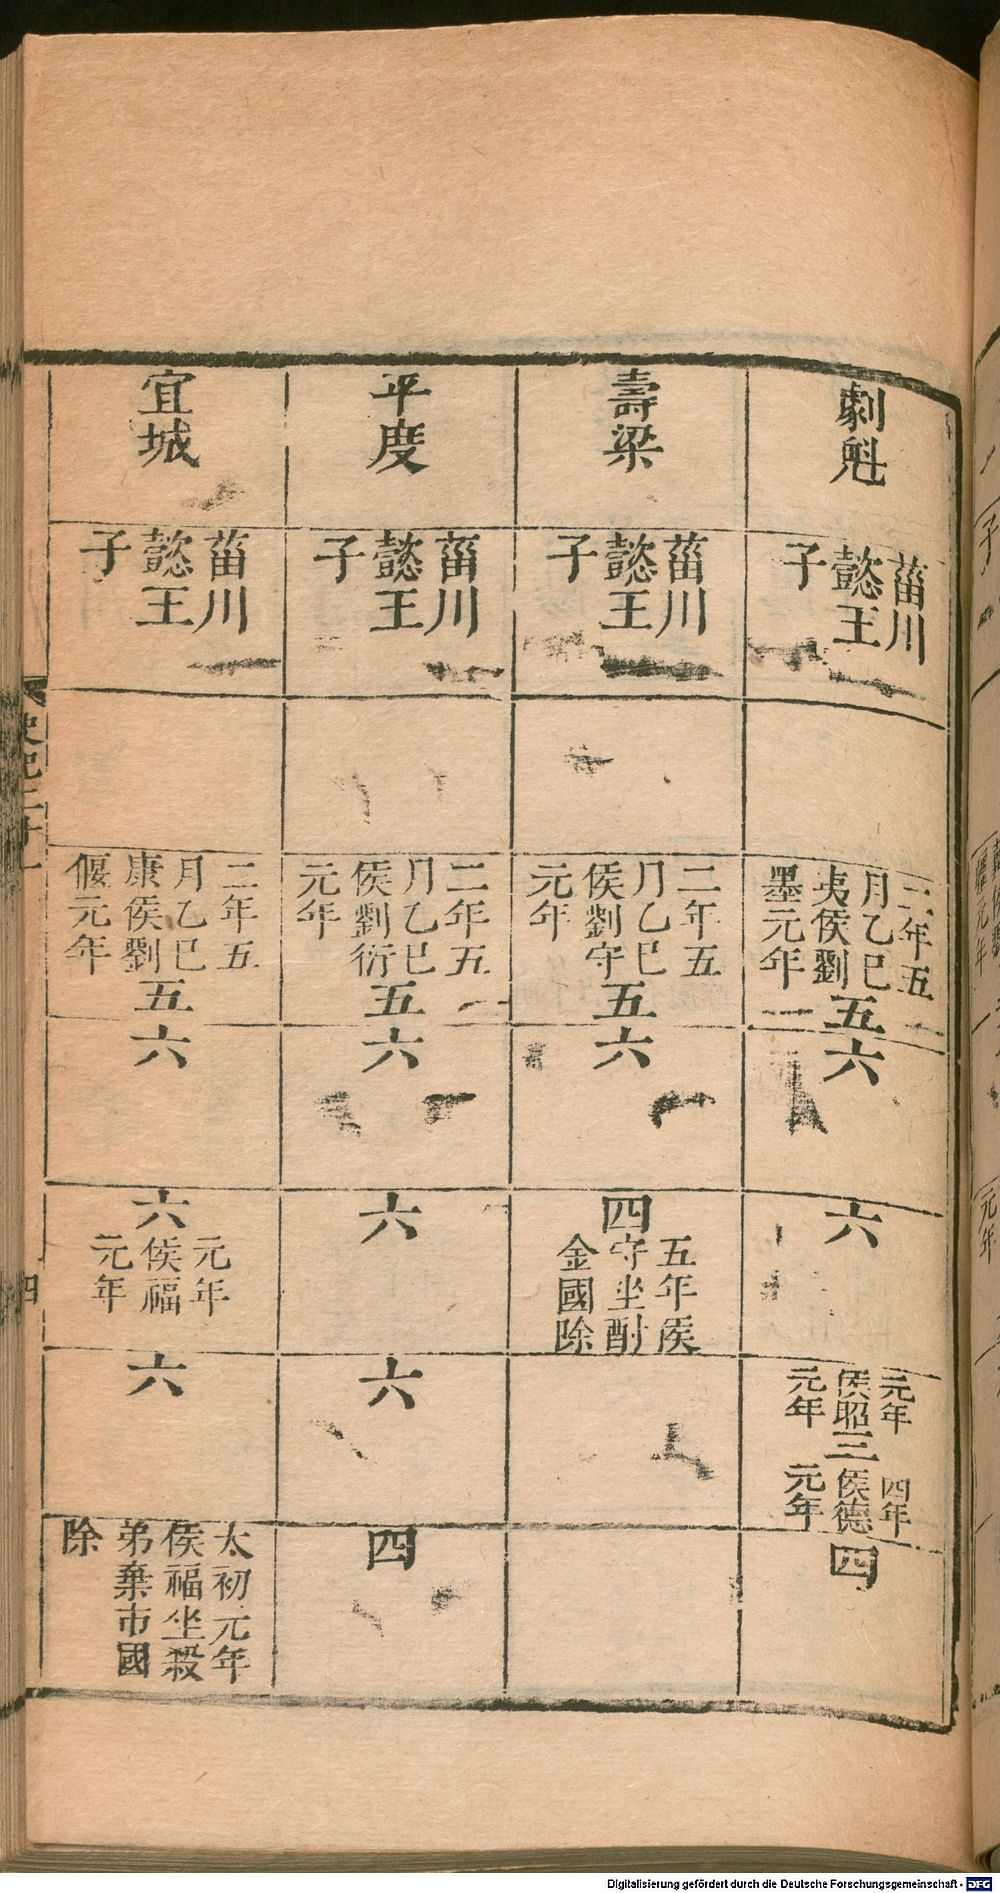 劇魁
菑川
懿王
子
二年五
月乙巳
夷侯劉
墨元年
五
六
六
元年
侯昭
元年
三
四年
侯德
元年
四
壽梁
菑川
懿王
子
二年五
月乙巳
侯劉守
元年
五
六
四
五年侯
守坐酎
金國除
平度
菑川
懿王
子
二年五
月乙巳
侯劉衍
元年
五
六
六
六
四
宜城
菑川
懿王
子
二年五
月乙巳
康侯劉
偃元年
五
六
六
元年
侯福
元年
六
太初元年
侯福坐殺
弟棄市國
除
史記二十一
四
Digitalisierung gefördert durch die Deutsche Forschungsgemeinschaft - DFG